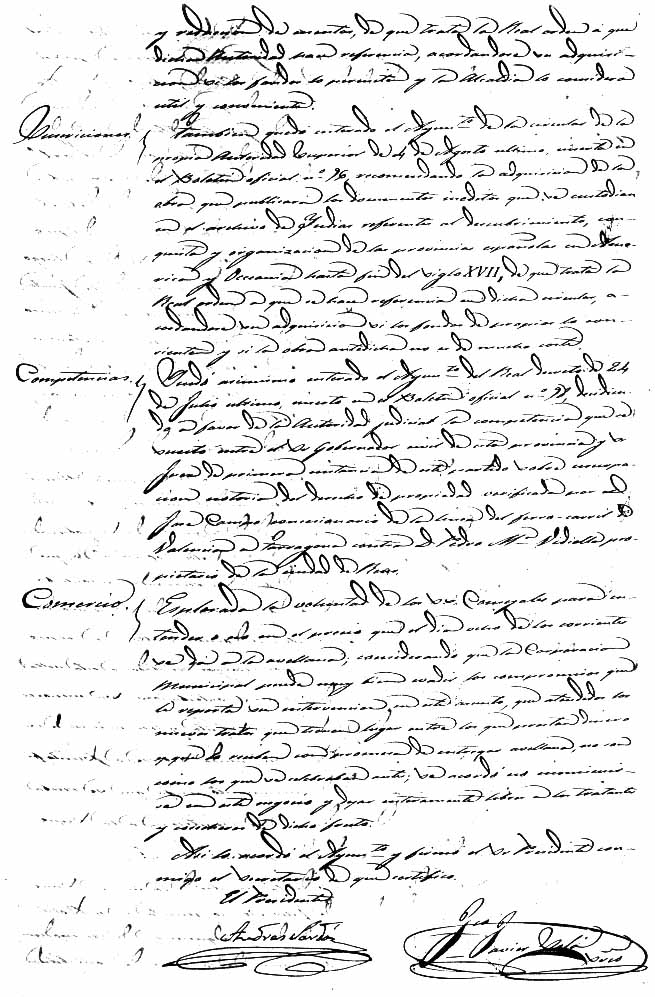 y redacción de cuentas, de que trata la Real orden á que
dicha Autoridad hace referencia, acordandose su adquisi-
cion si los fondos lo permiten y la Alcaldia lo considera
util y conveniente.
Tambien quedó enterado el Ayunt.º de la circular de la
propia Autoridad Superior de 4 de Agosto ultimo, inserta en
el Boletin oficial n.º 96, recomendando la adquisicion de la
obra que publicará los documentos ineditos que se custodian
en el archivo de Indias referentes al descubrimiento, con-
quista y organizacion de las provincias españolas en Ame-
rica y Occeania hasta fin del siglo XVII, de que trata la
Real orden á que se hace referencia en dicha circular, a-
cordandose su adquisicion si los fondos de propios lo con-
sienten y si la obra antedicha no es de mucho coste.
Competencias.
Quedó asimismo enterado el Ayunt.º del Real decreto de 24
de Julio ultimo, inserto en el Boletin oficial n.º 97, decidien-
do á favor de la Autoridad judicial la competencia que se
suscitó entre el Sr. Gobernador civil de esta provincia y el
Juez de primera instancia de este partido sobre
del derecho de propiedad verificada por D.
José Campo concesionario de la linea del ferro-carril de
Valencia á Tarragona contra D. Pedro M.ª Vidiella pro-
pietario de la ciudad de Reus.
Comercio.
Esplorada la voluntad de los Sres. Concejales para en-
tender ó no en el precio que el dia ocho de los corrientes
se dá á la avellana; considerando que la Corporacion
Municipal puede muy bien evadir los compromisos que
le reporta su intervencion en este asunto, que atendidos los
nuevos tratos que tienen lugar entre los que prestan dinero
y que lo reciben con promesa de entregar avellana, no son
como los que se celebraban antes, se acordó no inmiscuir-
se en este negocio y dejar enteramente libres á los tratantes
y de dicho fruto.
Asi lo acordó el Ayunt.º y firmó el Sr. Presidente con-
migo el Secretario de que certifico.
El Presidente
Andres
Javier
Srio